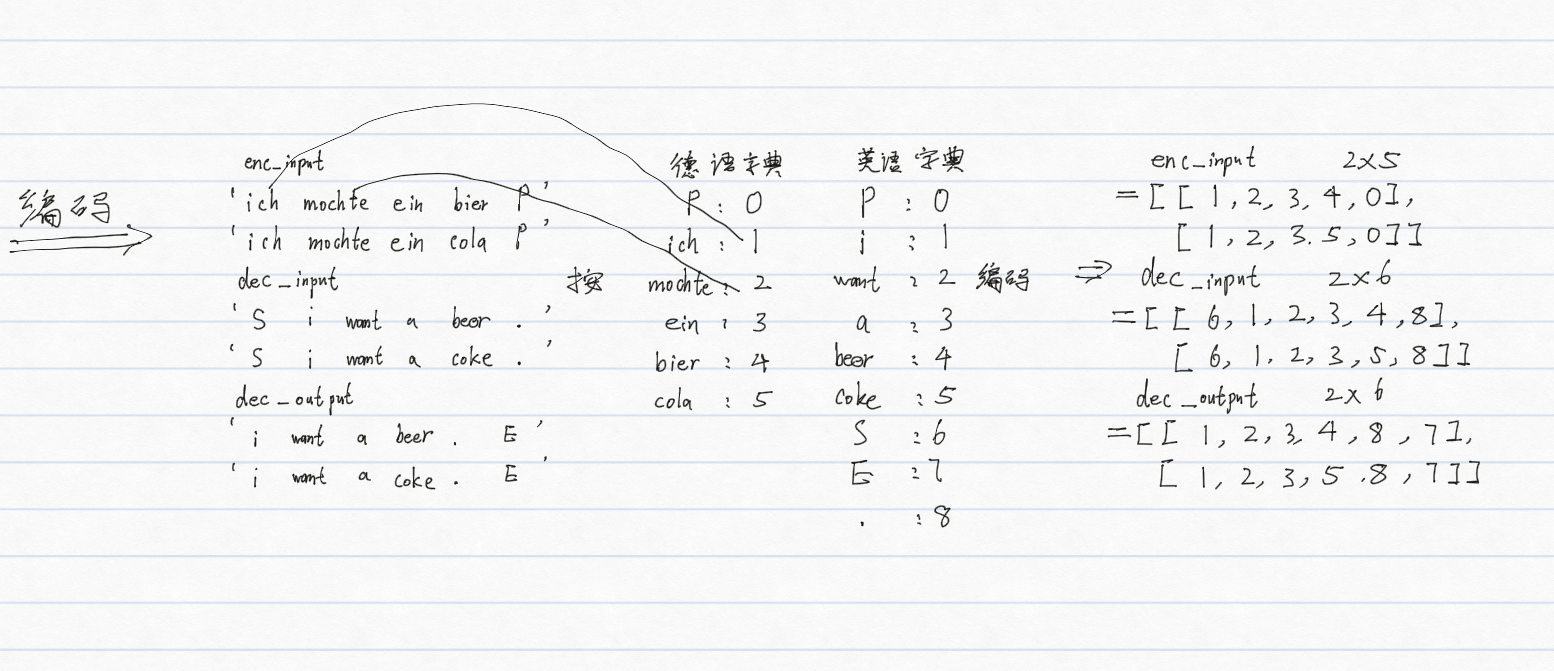 编码
enc_input
'ich mochte ein bier P'
'ich mochte ein cola P'
dec_input
'S i want a beer .'
'S i want a coke .'
dec_output
'i want a beer . E'
'i want a coke . E'
按
德语字典
P : 0
ich : 1
mochte : 2
ein : 3
bier : 4
cola : 5
英语字典
P : 0
i : 1
want : 2
a : 3
beer : 4
coke : 5
S : 6
E : 7
. : 8
编码 ⇒
enc_input 2×5
=[[1,2,3,4,0],
[1,2,3.5,0]]
dec_input 2×6
=[[6,1,2,3,4,8],
[6,1.2,3,5,8]]
dec_output 2×6
=[[1,2,3,4,8,7],
[1,2,3,5.8,7]]